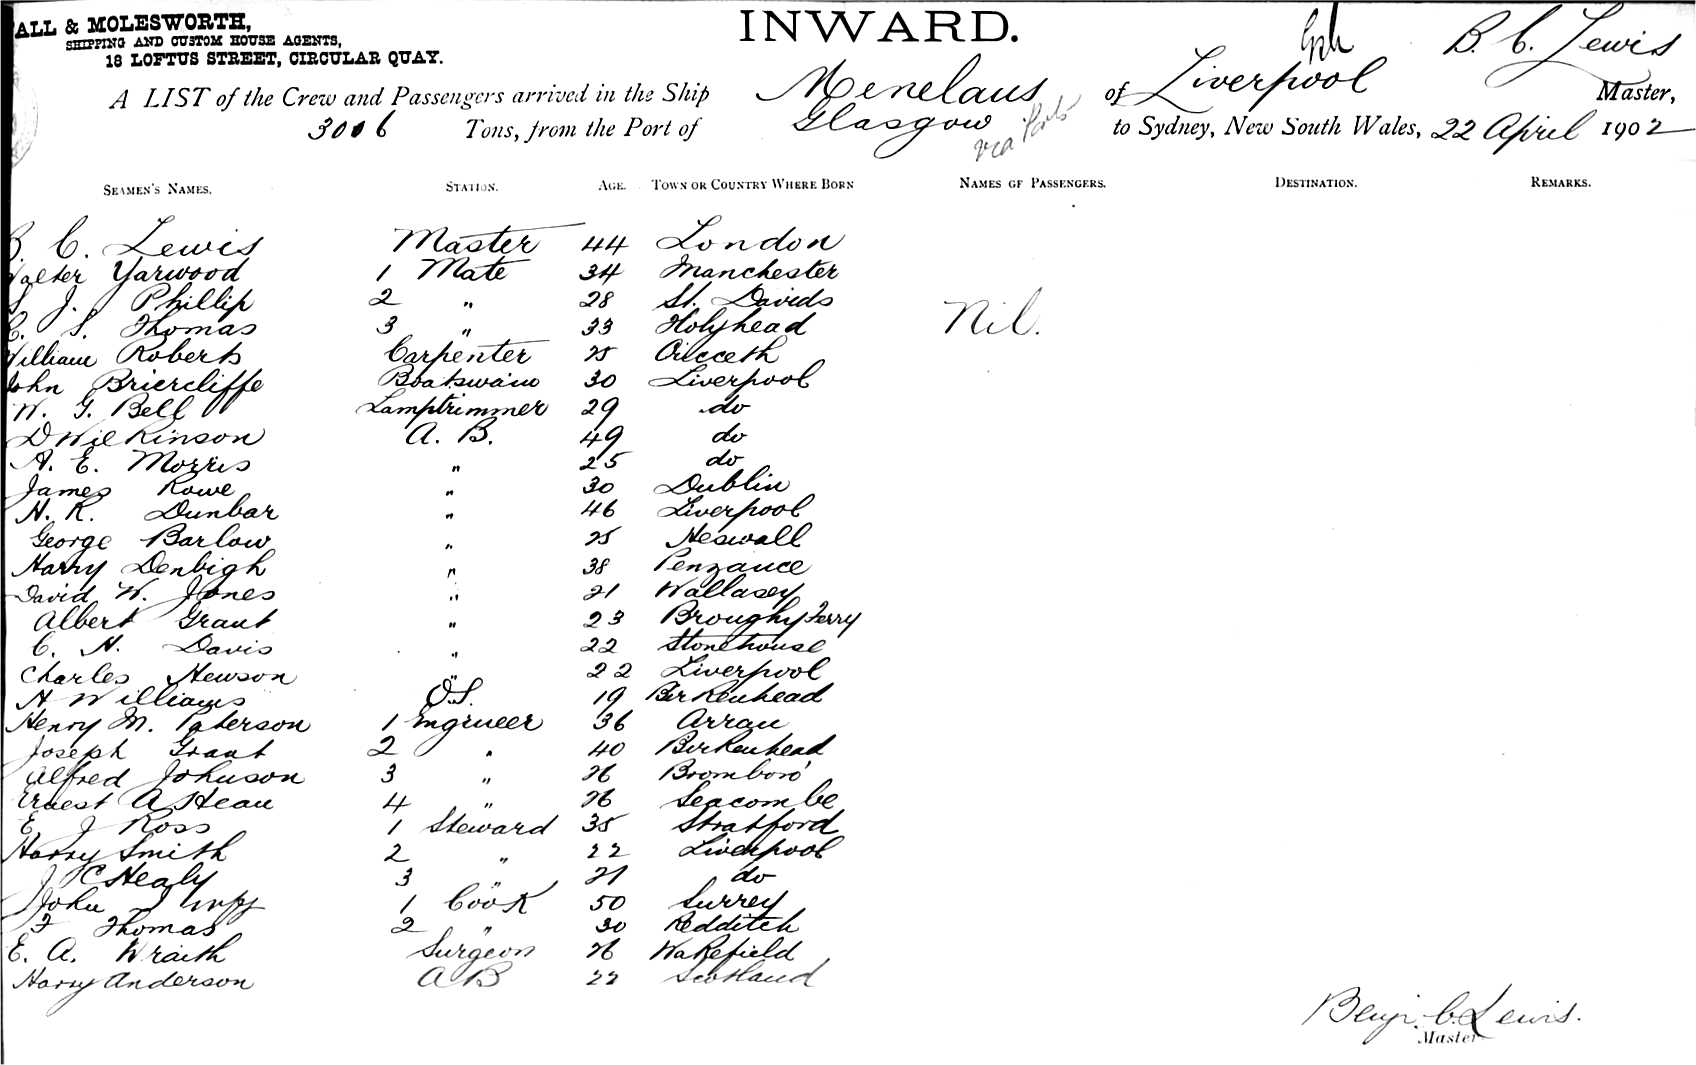 ALL & MOLESWORTH,
SHIPPING AND CUSTOM HOUSE AGENTS,
18 LOFTUS STREET, CIRCULAR QUAY.
INWARD.
B. C. Lewis
A LIST of the Crew and Passengers arrived in the Ship Menelaus of Liverpool Master,
3006 Tons, from the Port of Glasgow via Ports to Sydney, New South Wales, 22 April 1902
SEAMEN'S NAMES. STATION. AGE. TOWN OR COUNTRY WHERE BORN NAMES OF PASSENGERS. DESTINATION. REMARKS.
B. C. Lewis Master 44 London
Walter Yarwood 1 Mate 34 Manchester
J. Phillip 2 " 28 St. Davids Nil.
C. S. Thomas 3 " 33 Holyhead
William Roberts Carpenter 25
John Briercliffe Boatswain 30 Liverpool
W. G. Bell Lamptrimmer 29 do
D Wilkinson A. B. 49 do
A. E. Morris " 25 do
James Rowe " 30 Dublin
H. R. Dunbar " 46 Liverpool
George Barlow " 25 Heswall
Harry Denbigh " 38 Penzance
David W. Jones " 21 Wallasey
Albert Grant " 23 Broughy Ferry
C. H. Davis " 22 Stonehouse
Charles Hewson " 22 Liverpool
H Williams O.S. 19 Birkenhead
Henry M. Paterson 1 Engineer 36 Arran
Joseph Grant 2 " 40 Birkenhead
Alfred Johnson 3 " 26 Bromboro'
Ernest A Hean 4 " 26 Seacombe
E J Ross 1 Steward 35 Stratford
Harry Smith 2 " 22 Liverpool
J C Healy 3 " 21 do
John 1 Cook 50 Surrey
F Thomas 2 " 30 Redditch
E. A. Wraith Surgeon 26 Wakefield
Harry Anderson A B 22 Scotland
Benj. C. Lewis.
Master